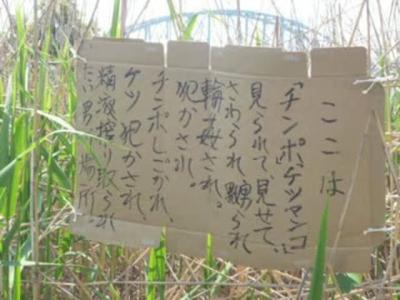 ここは
「チンポ、ケツマンコ」
見られて、見せて、
さわられ、嬲られ
輪姦され。
犯かされ。
チンポしごかれ、
ケツ犯かされ、
精液搾り取られ
たい男の場所。